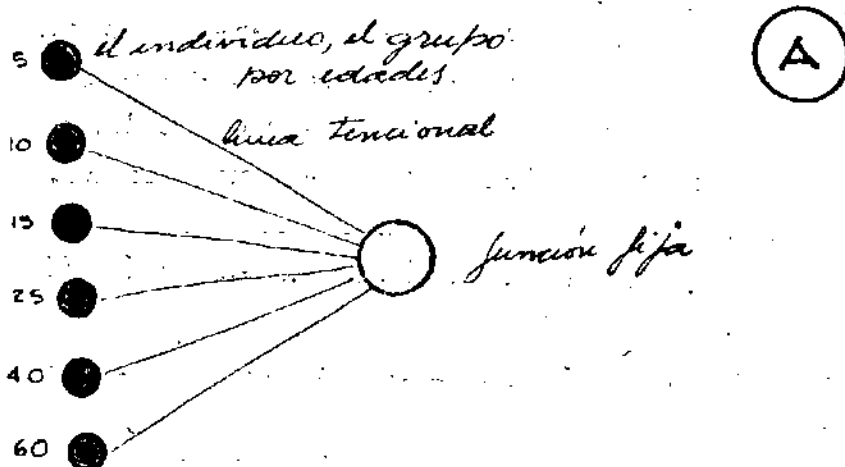 A
5 el individuo, el grupo
por edades.
10 linea tencional
15
función fija
25
40
60